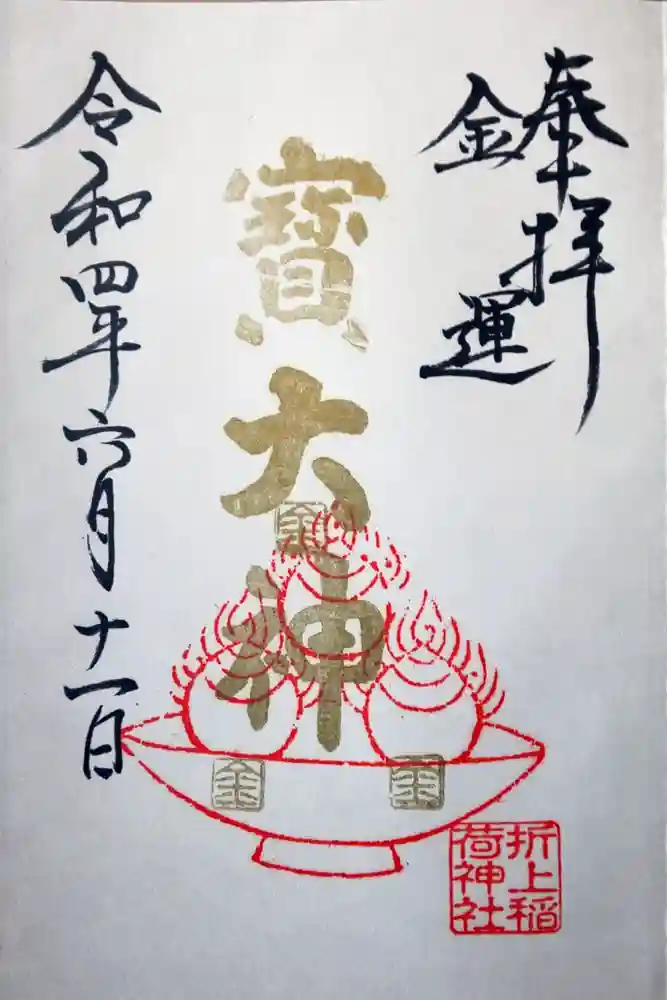 奉拝
金運
寳大神
金
金
金
折上稲
荷神社
令和四年六月十一日